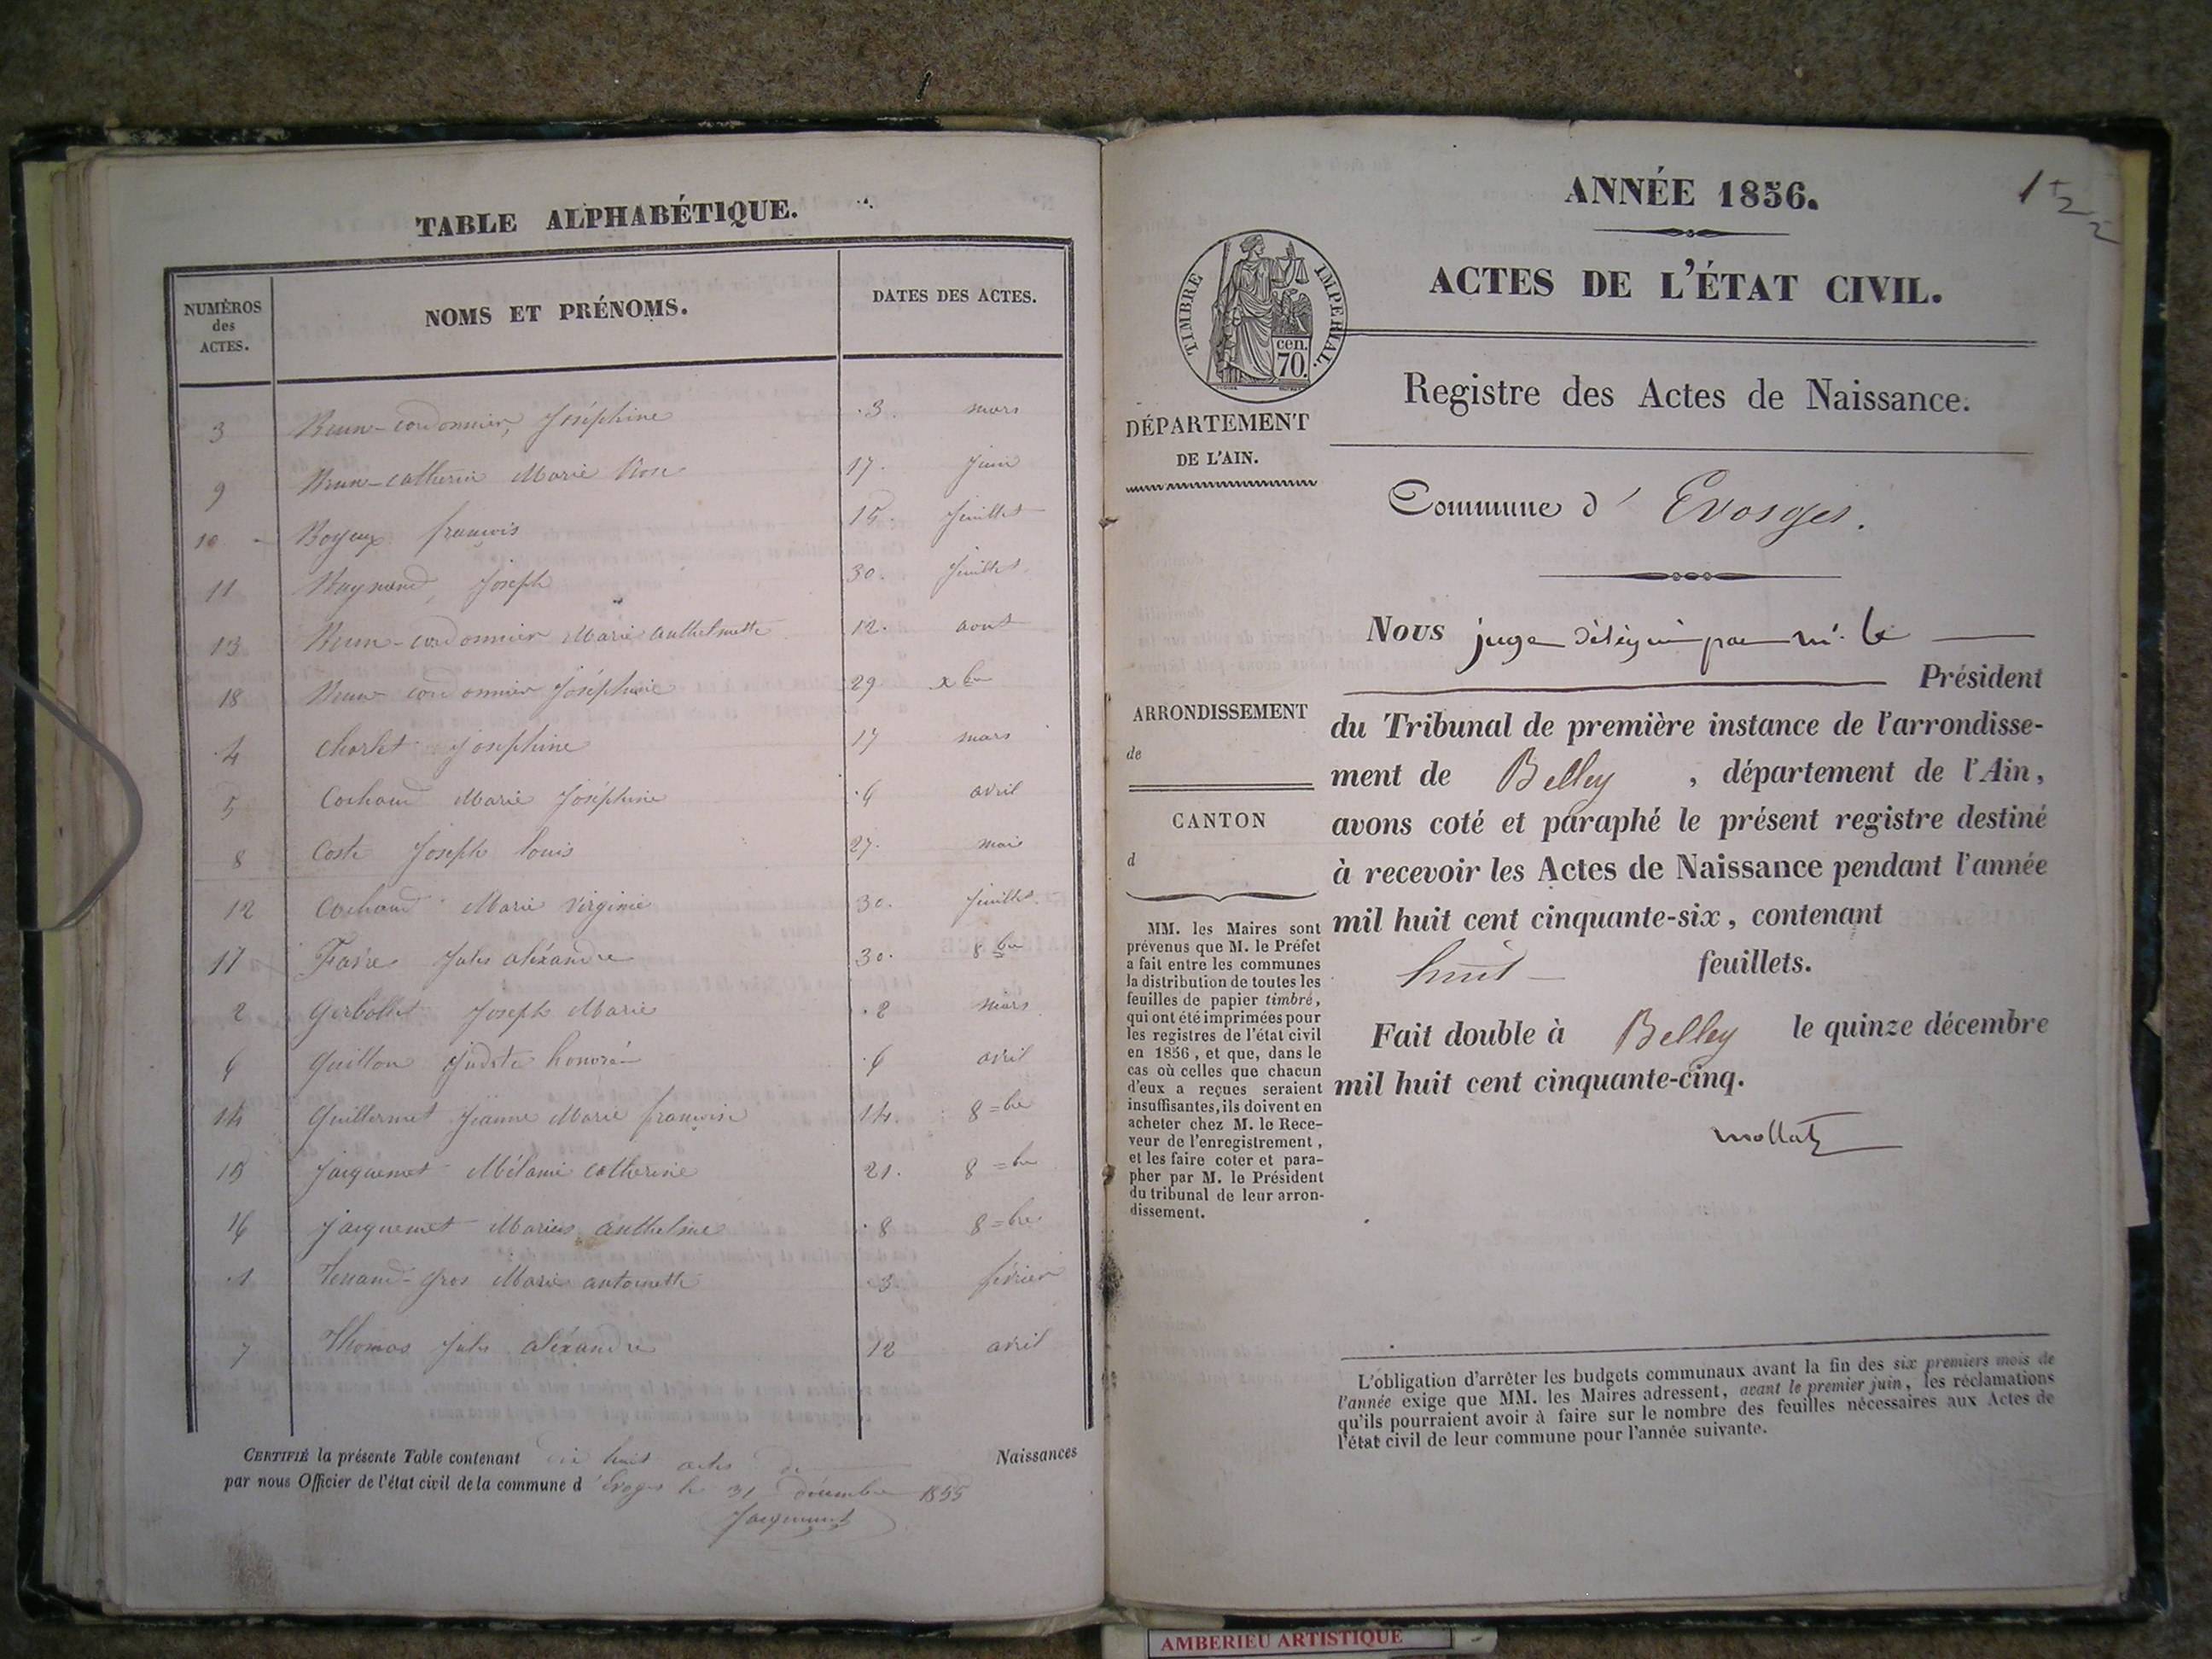 TABLE ALPHABÉTIQUE.
NUMÉROS des ACTES. NOMS ET PRÉNOMS. DATES DES ACTES.
3 Brun-cordonnier, Joséphine 3. mars
9 Brun-catherin Marie Rose 17. juin
10 Boyeux françois 15. juillet
11 Joseph 30. juillet
13 Brun-cordonnier Marie anthelmette 12. aout
18 Brun cordonnier Joséphine 29 xbre
4 Charlet Josephine 17 mars
5 Cochand Marie Joséphine 6 avril
8 Coste Joseph Louis 27. mai
12 Cochand Marie Virginie 30. juillet
17 Favre Jules aléxandre 30. 8bre
2 Gerbollet Joseph Marie 2 mars
6 Guillon honoré 6 avril
14 Guillermet Jeanne Marie françoise 14. 8=bre
15 Jacquemet Mélanie catherine 21. 8=bre
16 Jacquemet Marius anthelme 8 8=bre
1 Tenand-Gros Marie antoinette 3 février
7 Thomas Jules aléxandre 12 avril
CERTIFIÉ la présente Table contenant dix huit actes de Naissances
par nous Officier de l'état civil de la commune d'Evoges le 31 décembre 1855
Jacquemet
ANNÉE 1856.
ACTES DE L'ÉTAT CIVIL.
TIMBRE IMPERIAL.
cen.
70.
Registre des Actes de Naissance.
DÉPARTEMENT
DE L'AIN.
Commune d' Evosges.
Nous juge délégué par mr. le
Président
ARRONDISSEMENT
de
CANTON
d
du Tribunal de première instance de l'arrondisse-
ment de Belley, département de l'Ain,
avons coté et paraphé le présent registre destiné
à recevoir les Actes de Naissance pendant l'année
mil huit cent cinquante-six, contenant
huit feuillets.
Fait double à Belley le quinze décembre
mil huit cent cinquante-cinq.
MM. les Maires sont
prévenus que M. le Préfet
a fait entre les communes
la distribution de toutes les
feuilles de papier timbré,
qui ont été imprimées pour
les registres de l'état civil
en 1856, et que, dans le
cas où celles que chacun
d'eux a reçues seraient
insuffisantes, ils doivent en
acheter chez M. le Rece-
veur de l'enregistrement,
et les faire coter et para-
pher par M. le Président
du tribunal de leur arron-
dissement.
L'obligation d'arrêter les budgets communaux avant la fin des six premiers mois de
l'année exige que MM. les Maires adressent, avant le premier juin, les réclamations
qu'ils pourraient avoir à faire sur le nombre des feuilles nécessaires aux Actes de
l'état civil de leur commune pour l'année suivante.
AMBERIEU ARTISTIQUE